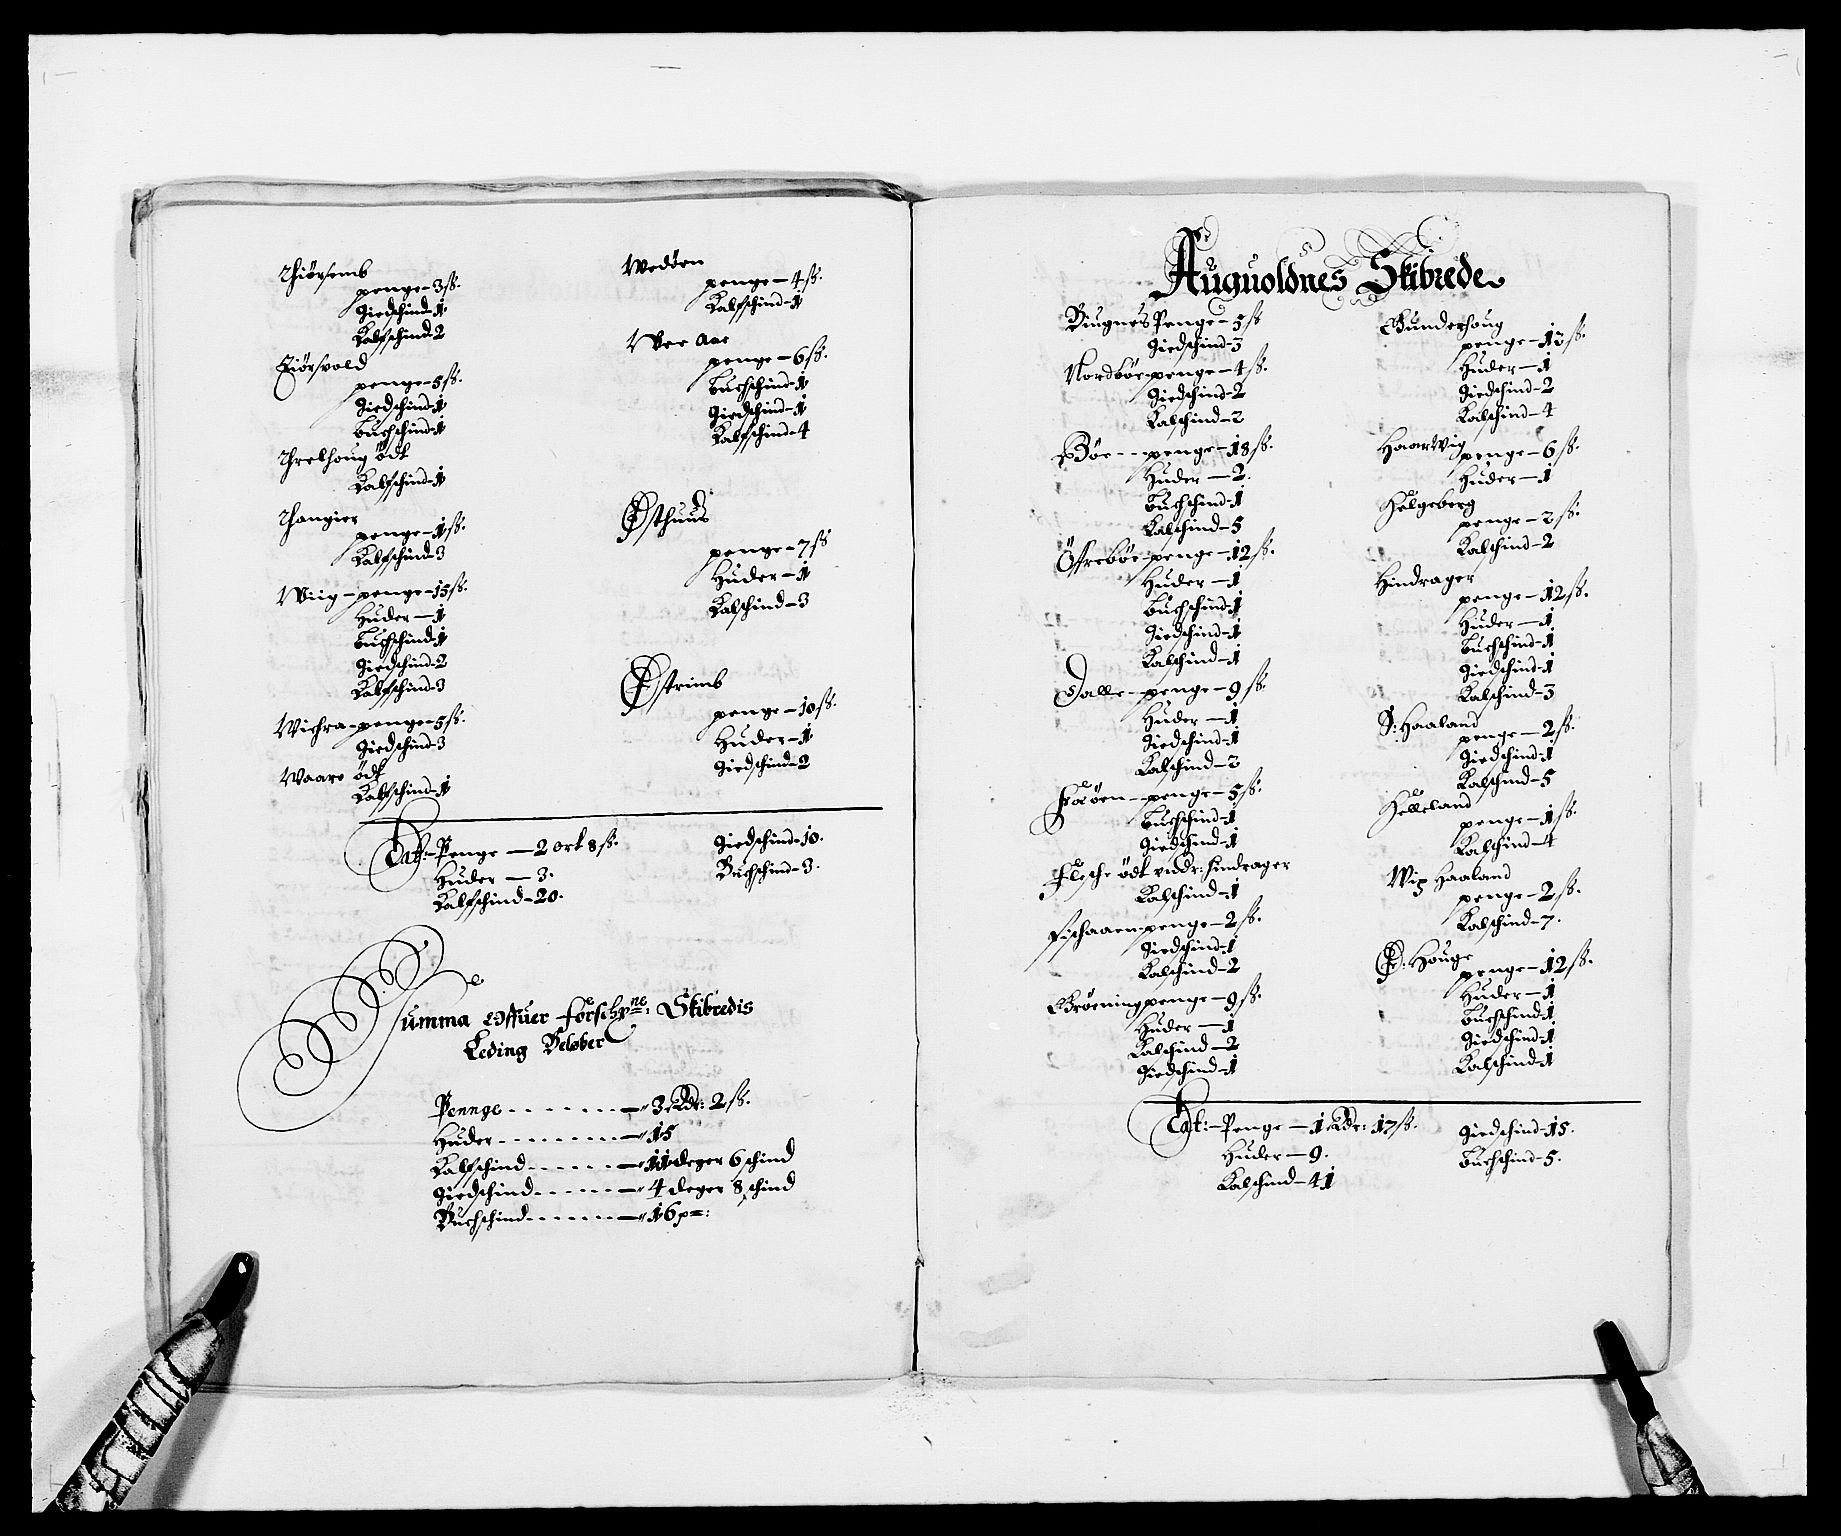 Thiørsemb
penge - 3 ß.
Giedschind - 1
Kalfschind - 2
Fiørsvold
penge - 5 ß.
Giedschind - 1
buchschind - 1
Threlhoug ödt
Kalfschind - 1
Thangier
penge - 1 ß.
Kalfschind - 3
Wiig - penge - 15 ß.
Huder - 1
buchschind - 1
Giedschind - 2
Kalfschind - 3
Wichra - penge - 5 ß.
Giedschind - 3
Waare ödt
Kalfschind - 1
Wedøen
penge - 4 ß.
Kalfschind - 1
Wee Aae
penge - 6 ß.
buchschind - 1
Giedschind - 1
Kalfschind - 4
Østhuus
penge - 7 ß
Huder - 1
Kalfschind - 3
Østrimb
penge - 10 ß.
Huder - 1
Giedschind - 2
Lat: - Penge - 2 ort 8 ß.
Huder - 3.
Kalfschind - 20.
Giedschind - 10.
Buchschind - 3.
Summa offuer forschr:ne Skibredis
Leding Beløber
Pennge - 3 Rdr: 2 ß.
Huder - 15
Kalfschind - 11 deger 6 schind
Giedschind - 4 deger 8 schind
Buchschind - 16 p=:
Auguoldnes Skibrede
Biugnes Penge - 5 ß
Giedschind - 3
Nordbøe penge - 4 ß.
Giedschind - 2
Kalschind - 2
Bøe - penge - 18 ß.
Huder - 2.
buchschind - 1
Kalschind - 5
Öffrebøe - penge - 12 ß.
Huder - 1
buchschind - 1
Giedschind - 1
Kalschind - 1
Dalle - penge - 9 ß.
Huder - 1
Giedschind - 1
Kalschind - 2
Feøen - penge - 5 ß.
buchschind - 1
Giedschind - 1
Flesche ödt vndr: hindrager
Kalschind - 1
Fischaaen penge - 2 ß.
Giedschind - 1
Kalschind - 2
Grøening penge - 9 ß.
Huder - 1
Kalschind - 2
Giedschind - 1
Gunderhoug
penge - 12 ß.
Huder - 1
Giedschind - 2
Kalschind - 4
Haarwig
penge - 6 ß.
Huder - 1
Helgeberg
penge - 2 ß.
Kalschind - 2
Hindrager
penge - 12 ß.
Huder - 1
buchschind - 1
Giedschind - 1
Kalschind - 3
S: Haaland
penge - 2 ß.
Giedschind - 1
Kalschind - 5
Helleland
penge - 1 ß.
Kalschind - 4
Haaland
penge - 2 ß.
Kalschind - 7.
Ø: Houge
penge - 12 ß.
Huder - 1
buchschind - 1
Giedschind - 1
Kalschind - 1
Lat: - Penge - 1 Rdr: 17 ß.
Huder - 9.
Kalschind - 41
Giedschind - 15.
buchschind - 5.